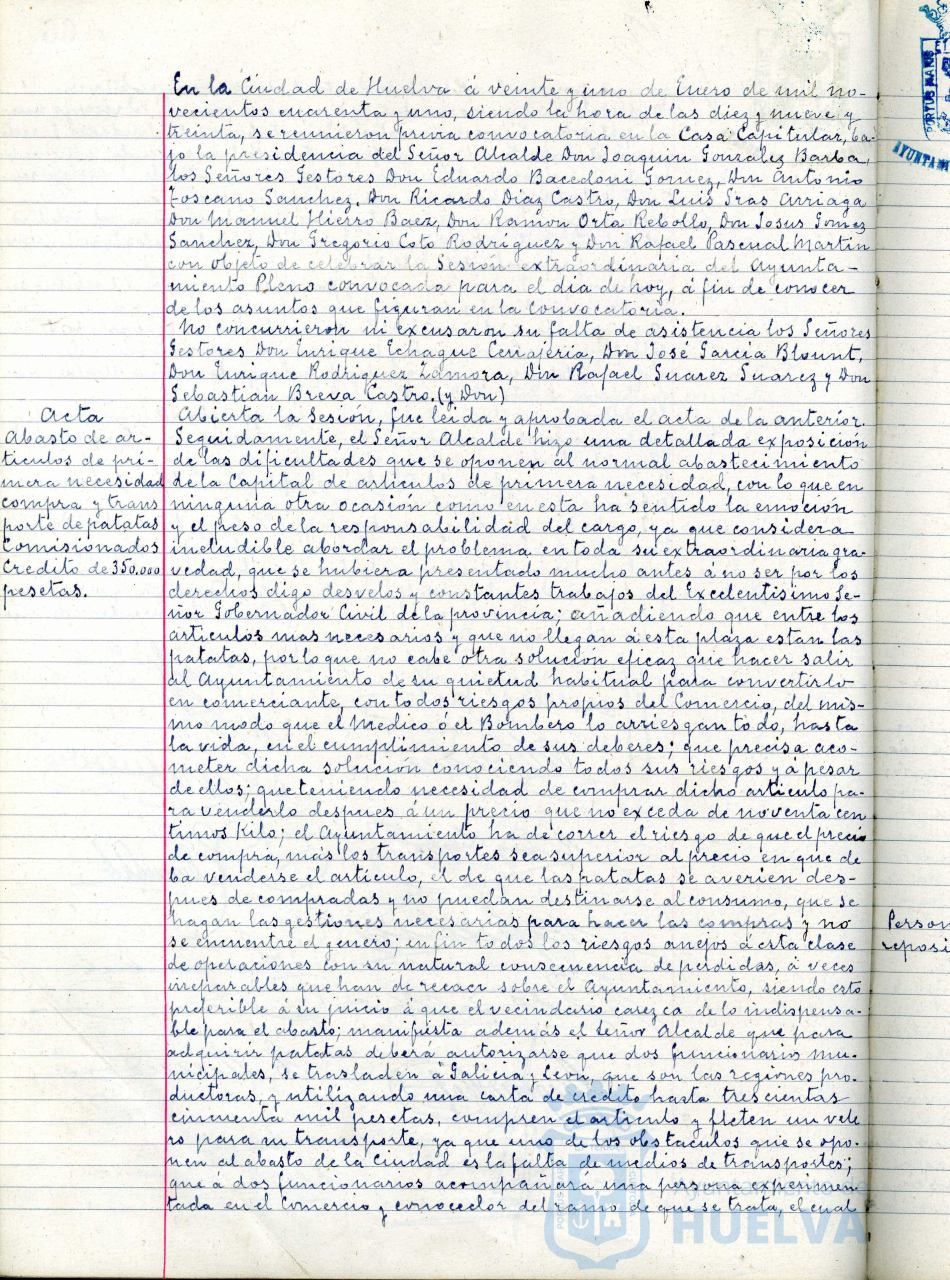 En la Ciudad de Huelva á veinte y uno de Enero de mil no-
vecientos cuarenta y uno, siendo la hora de las diez y nueve y
treinta, se reunieron previa convocatoria en la Casa Capitular, ba-
jo la presidencia del Señor Alcalde Don Joaquin González Barba,
los Señores Gestores Don Eduardo Bacedoni Gomez, Don Antonio
Toscano Sanchez, Don Ricardo Diaz Castro, Don Luis Sras Arriaga
Don Manuel Hierro Baez, Don Ramon Orta Rebollo, Don Josus Gomez
Sanchez, Don Gregorio Coto Rodriguez y Don Rafael Pascual Martin
con objeto de celebrar la Sesión extraordinaria del Ayunta-
miento Pleno convocada para el dia de hoy, á fin de conocer
de los asuntos que figuran en la Convocatoria.
No concurrieron ni excusaron su falta de asistencia los Señores
Gestores Don Enrique Echague Cerrajeria, Don José Garcia Blount,
Don Enrique Rodriguez Zamora, Don Rafael Suarez Suarez y Don
Sebastian Breva Castro. (y Don)
Acta
Abasto de ar-
ticulos de pri-
mera necesidad
compra y trans
porte de patatas
Comisionados
Credito de 350.000
pesetas.
Abierta la Sesión, fue léida y aprobada el acta de la anterior.
Seguidamente, el Señor Alcalde hizo una detallada exposición
de las dificultades que se oponen al normal abastecimiento
de la Capital de articulos de primera necesidad, con lo que en
ninguna otra ocasión como en esta ha sentido la emoción
y el peso de la responsabilidad del cargo, ya que considera
ineludible abordar el problema en toda su extraordinaria gra-
vedad, que se hubiera presentado mucho antes á no ser por los
derechos digo desvelos y constantes trabajos del Excelentisimo Se-
ñor Gobernador Civil de la provincia; añadiendo que entre los
articulos mas necesarios y que no llegan á esta plaza estan las
patatas, por lo que no cabe otra solución eficaz que hacer salir
al Ayuntamiento de su quietud habitual para convertirlo
en comerciante, con todos riesgos propios del Comercio, del mis-
mo modo que el Medico ó el Bombero lo arriesgan todo, hasta
la vida, en el cumplimiento de sus deberes; que precisa aco-
meter dicha solución conociendo todos sus riesgos y á pesar
de ellos; que teniendo necesidad de comprar dicho articulo pa-
ra venderlo despues á un precio que no exceda de noventa cen
timos Kilo; el Ayuntamiento ha de correr el riesgo de que el precio
de compra, más los transportes sea superior al precio en que de
ba venderse el articulo, el de que las patatas se averien des-
pues de compradas y no puedan destinarse al consumo, que se
hagan las gestiones necesarias para hacer las compras y no
se encuentre el genero; en fin todos los riesgos anejos á esta clase
de operaciones con su natural consecuencia de perdidas, á veces
irreparables que han de recaer sobre el Ayuntamiento, siendo esto
preferible á su juicio á que el vecindario carezca de lo indispensa-
ble para el abasto; manifiesta además el Señor Alcalde que para
adquirir patatas deberá autorizarse que dos funcionarios mu-
nicipales, se trasladen á Galicia y Leon, que son las regiones pro-
ductoras, y utilizando una carta de credito hasta trescientas
cincuenta mil pesetas, compren el articulo y fleten un vele
ro para su transporte, ya que uno de los obstaculos que se opo-
nen al abasto de la Ciudad es la falta de medios de transportes;
que á dos funcionarios acompañará una persona experimen
tada en el Comercio y conocedor del ramo de que se trata, el cual
Person
reposi
PORTUS MARIS
AYUNTAM
HUELVA